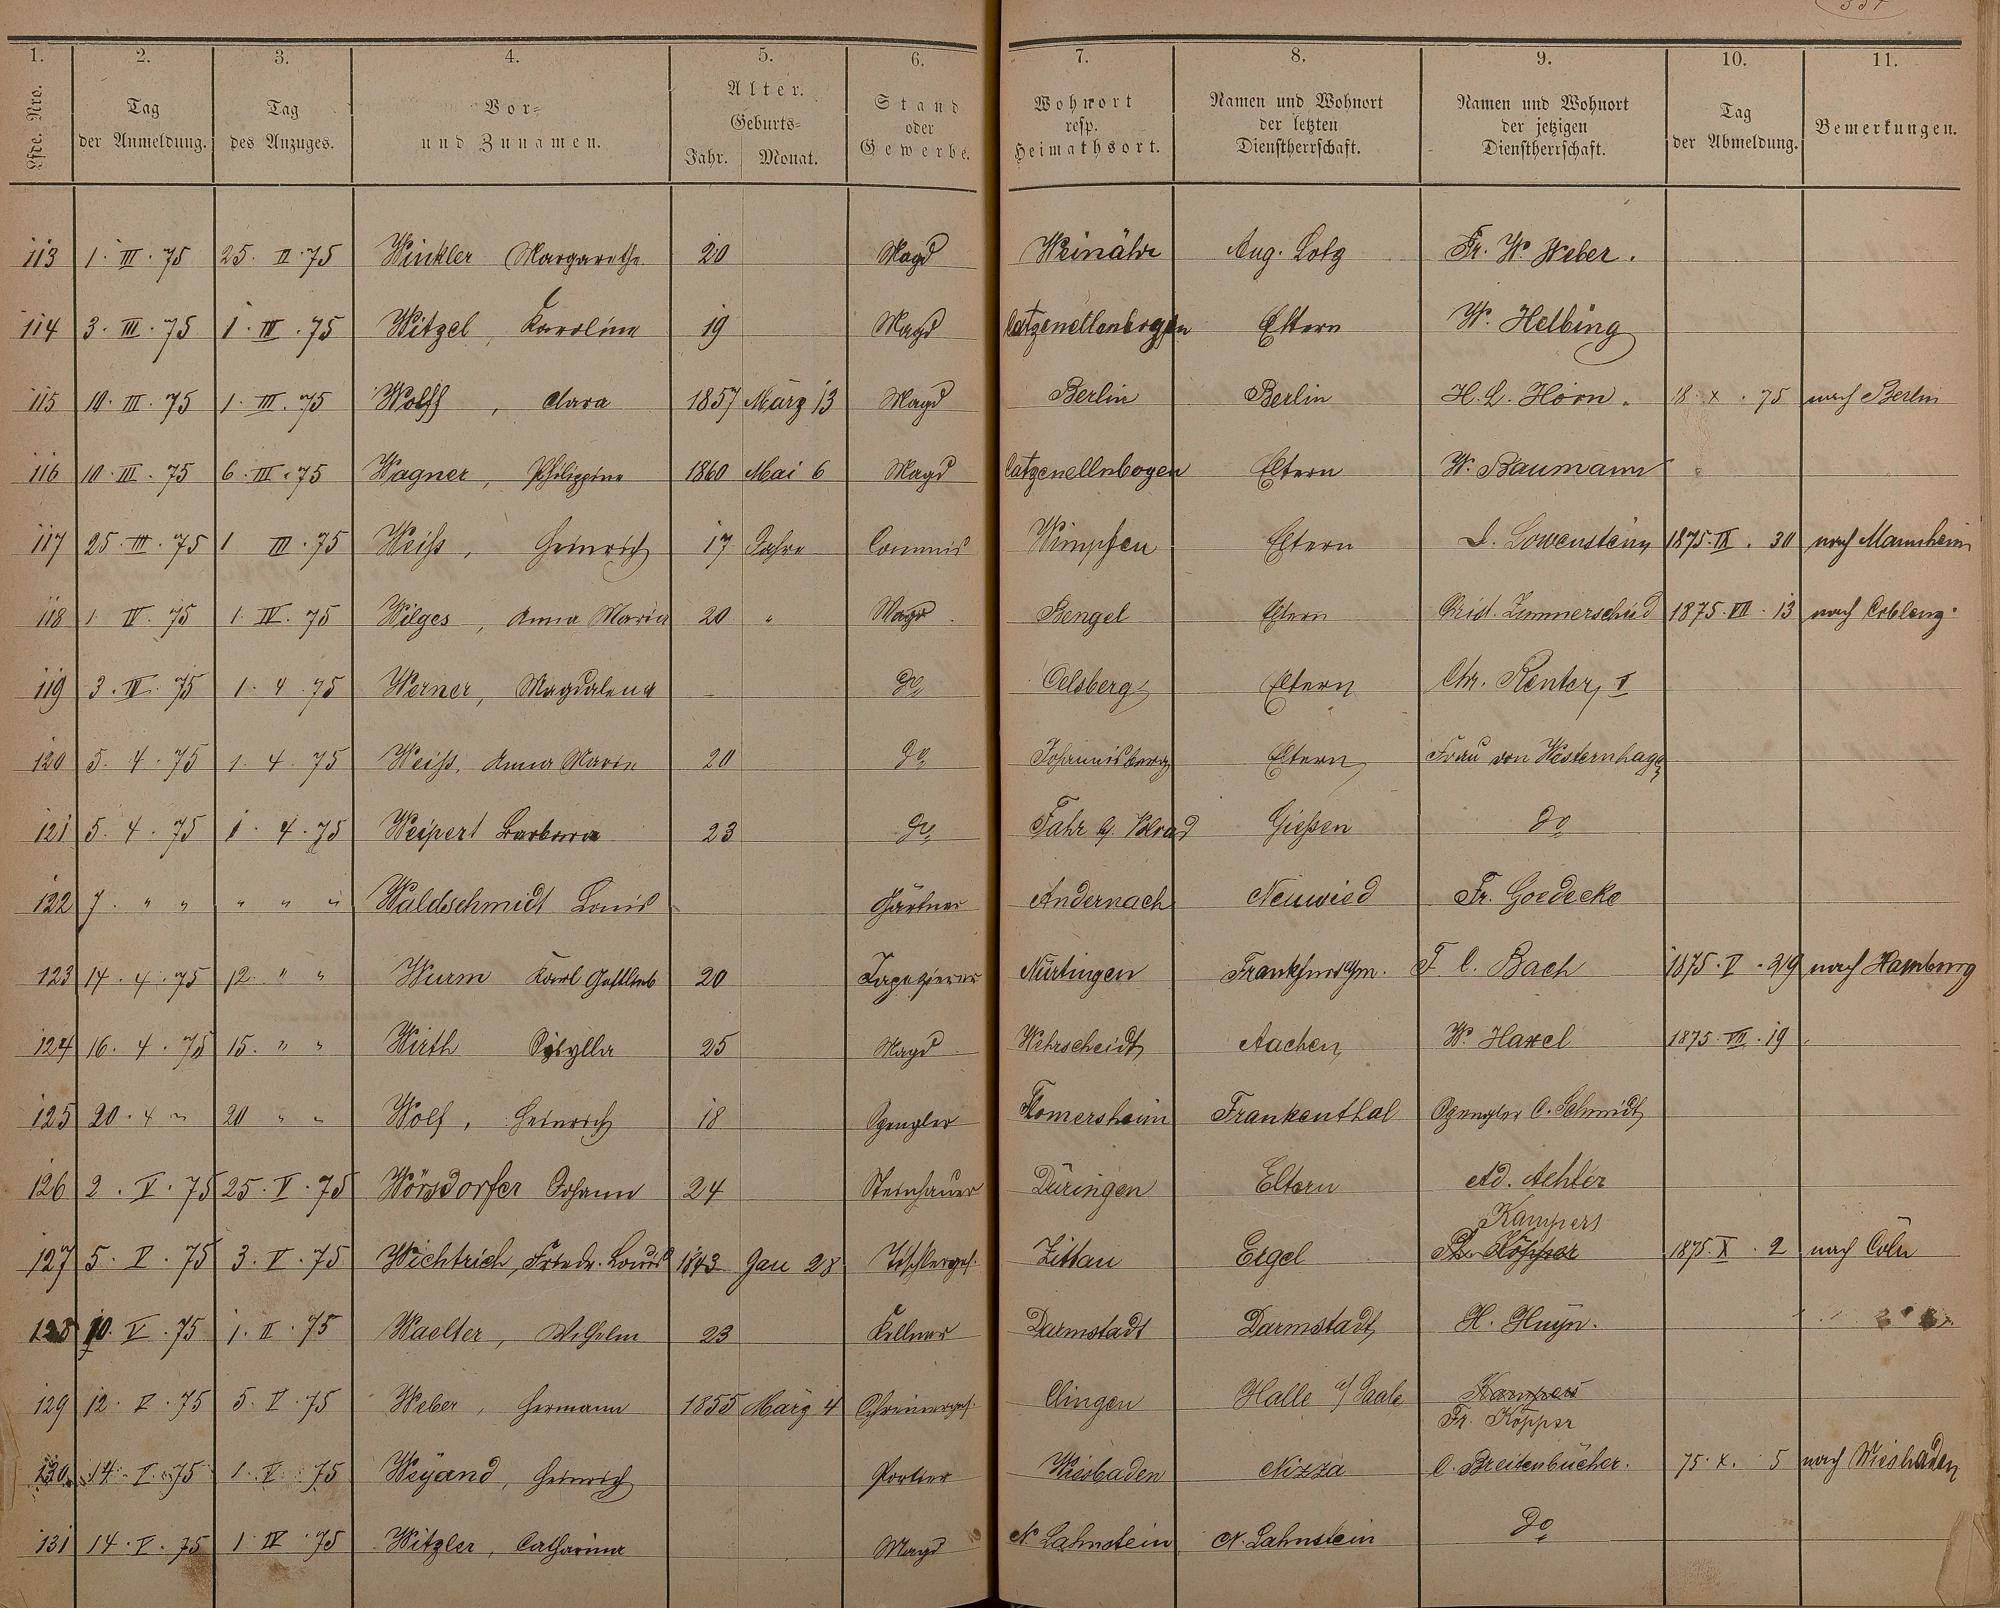 1. 2. 3. 4. 5. 6. 7. 8. 9. 10. 11.
Lfde. Nro. Tag der Anmeldung. Tag des Anzuges. Vor- und Zunamen. Alter. Geburts- Jahr. Monat. Stand oder Gewerbe. Wohnort resp. Heimathsort. Namen und Wohnort der letzten Dienstherrschaft. Namen und Wohnort der jetzigen Dienstherrschaft. Tag der Abmeldung. Bemerkungen.
113 1. III. 75 25. II. 75 Winkler Margarethe 20 Magd Weinähr Aug. Lotz Fr. W. Weber.
114 3. III. 75 1. III. 75 Witzel, Karoline 19 Magd Catzenellenbogen Eltern W. Helbing
115 10. III. 75 1. III. 75 Wolff, Clara 1857 März 13 Magd Berlin Berlin H. L. Horn. 18. X. 75 nach Berlin
116 10. III. 75 6. III. 75 Wagner, Philippine 1860 Mai 6 Magd Catzenellnbogen Eltern W. Baumann
117 25. III. 75 1 III. 75 Weiß, Heinrich 17 Jahre Commis Wimpfen Eltern L. Lowenstein 1875. IX. 30 nach Mannheim
118 1. IV. 75 1. IV. 75 Wilges, Anna Maria 20 " Magd Bengel Eltern Christ. Zimmerschied 1875. VII. 13 nach Coblenz.
119 3. IV. 75 1. 4. 75 Werner, Magdalena do Oelsberg Eltern Chr. Renter, I
120 5. 4. 75 1. 4. 75 Weiß, Anna Marie 20 do Johannisberg Eltern Frau von Westernhagen
121 5. 4. 75 1. 4. 75 Weipert Barbara 23 do Fahr Gießen do
122 7. " " " " " Waldschmidt Louis Gärtner Andernach Neuwied Fr. Goedecke
123 14. 4. 75 12. " " Wurm Karl Gottlieb 20 Tapezierer Nürtingen Frankfurt a/m. F. C. Bach 1875. V. 29 nach Hamburg
124 16. 4. 75 15. " " Wirth Sibylla 25 Magd Wehrscheidt Aachen W. Haxel 1875. VII. 19
125 20. 4 " 20 " " Wolf, Heinrich 18 Spengler Flomersheim Frankenthal Spengler C. Schmidt
126 2. V. 75 25. V. 75 Wörsdorfer Johann 24 Steinhauer Düringen Eltern Ad. Aehler
Kampers
127 5. V. 75 3. V. 75 Wichtrich, Friedr. Louis 1843 Jan 28 Tischlerges. Zittau Ergel Fr. Köpper 1875. X. 2 nach Cöln
128 10. V. 75 1. II. 75 Waelter, Wilhelm 23 Kellner Darmstadt Darmstadt H. Huyn.
129 12. V. 75 5. V. 75 Weber, Hermann 1855 März 4 Schreinerges. Clingen Halle a/Saale Kampers
Fr. Köpper
130 14. V. 75 1. V. 75 Weyand, Heinrich Portier Wiesbaden Nizza C. Breitenbücher. 75. X. 5 nach Wiesbaden
131 14. V. 75 1. IV. 75 Witzler, Catharina Magd N. Lahnstein N. Lahnstein do